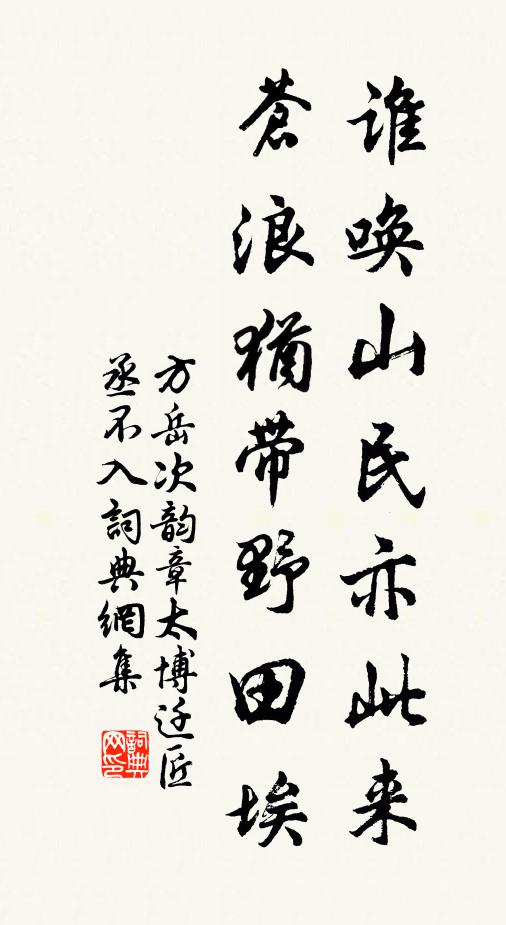 谁唤山民亦此来
苍浪犹带野田埃
方岳次韵章太博迁匠
丞不入詞典網集
詞典网印